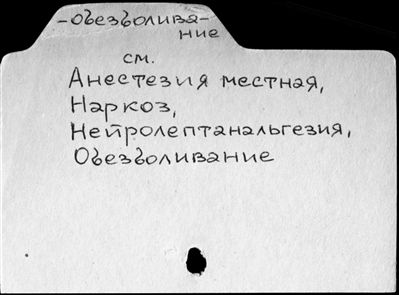 -Обезболива-
ние
см.
Анестезия местная,
Наркоз,
Нейролептанальгезия,
Обезболивание